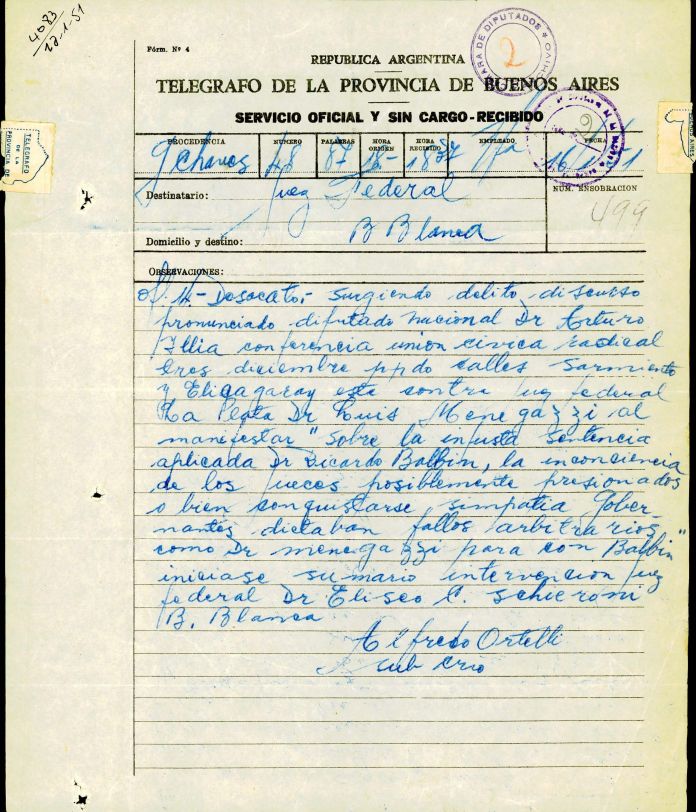 4083
12-1-51
Fórm. Nº 4
CAMARA DE DIPUTADOS
ARCHIVO
2
REPUBLICA ARGENTINA
TELEGRAFO DE LA PROVINCIA DE BUENOS AIRES
SERVICIO OFICIAL Y SIN CARGO-RECIBIDO
TELEGRAFO
DE LA
PROVINCIA DE
BUENOS AIRES
PROCEDENCIA NUMERO PALABRAS HORA ORIGEN HORA RECIBIDO EMPLEADO FECHA
G Chaves 48 87 18- 1837
Destinatario: Juez Federal
NUM. ENSOBRACION
499
Domicilio y destino: B Blanca
OBSERVACIONES:
Of. H.- Desacato.- surgiendo delito discurso
pronunciado diputado nacional Dr Arturo
Illia conferencia union civica radical
tres diciembre ppdo calles Sarmiento
y Eligagaray esta contra juez federal
La Plata Dr Luis Menegazzi al
manifestar "Sobre la injusta sentencia
aplicada Dr Ricardo Balbin, la inconciencia
de los jueces posiblemente presionados
o bien conquistarse simpatia Gober-
nantes dictaban fallos arbitrarios
como Dr menegazzi para con Balbin"
iniciase sumario intervencion juez
federal Dr Eliseo C. Schieroni
B. Blanca
Alfredo Ortelli
sub crio